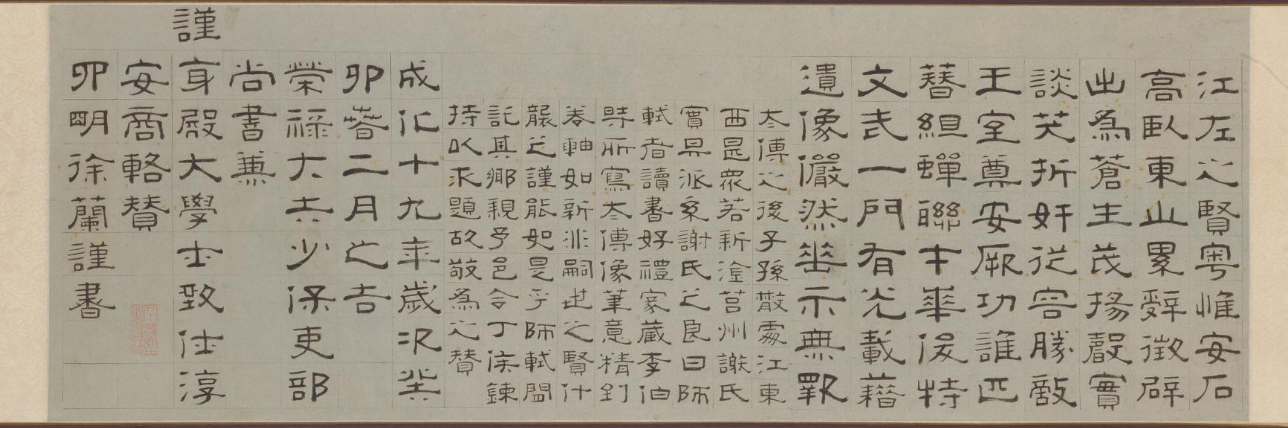 江左之賢粵惟安石
高臥東山累辭徵辟
出為蒼生茂揚聲實
談笑折奸從容勝敵
王室尊安厥功誰匹
簪組蟬聯中華後特
文武一門有光載藉
遺像儼然垂示無斁
太傅之後子孫散處江東
西昆眾若新淦莒州謝氏
實昇派系謝氏之良曰師
軾者讀書好禮家藏李伯
時所寫太傅像筆意精到
卷軸如新非嗣世之賢什
襲之謹能如是乎師軾間
託其鄉親予邑令丁侯鍊
持以求題故敬為之贊
成化十九年歲次癸
卯春二月之吉
榮祿大夫少保吏部
尚書兼
謹身殿大學士致仕淳
安商輅贊
卯明徐蘭謹書